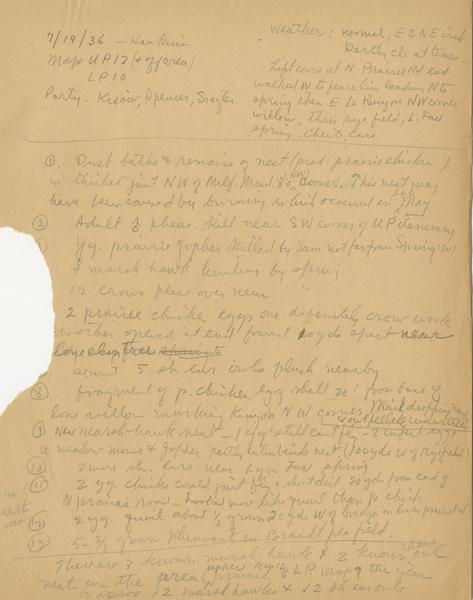 7/19/36 - Hawkins
Maps UP17 (+ off area)
LP10
Party - Spencer, Siegler
Weather: normal, E to NE wind
partly cl. at times
Left cars at N Prairie Rd end
walked W to fence line leading N to
spring then E to Kinyon NW corner
willow, thru rye field, L. Fav.
spring cars
①. Dust baths & remains of nest (prob. prairie chicken)
in thicket just NW of Milf. Mead. 80 NW corner. This nest may
have been caused by burning which occurred in May
② Adult ♂ pheas. kill near SW corner of UP
yg. prairie gopher killed by Sam not far from Spring W
♀ marsh hawk hunting by spring
12 crows flew over near "
2 prairie chicken eggs are definitely crow work
other opened at end found 10 yds apart near
lone
about 5 sh. ear owls flush nearby
⑧ fragment of p. chicken egg shell 20' from base of
lone willow marking Kinyon NW corner Mink droppings
& owl pellets under tree
⑨ New marsh hawk nest - 1 yg. still can't fly - 2 infert. eggs
a meadow mouse & gopher partly eaten beside nest (100 yds W of rye field)
⑩ 2 more sh. ears near Lyn Fav spring
⑪ 2 yg. chicks could just fly a short dist 20 yds from end of
N prairie road - looked more like quail than p. chick.
no adult seen
⑫ 2 yg. quail about ½ grown 20 yds W of bridge on
⑬ 5 - ⅔ grown pheasant in Brandt pea field.
There are 3 known marsh hawk & 2 known sh. ear owl
nest on the area this year
or approx 12 marsh hawks & 12 sh ear owls